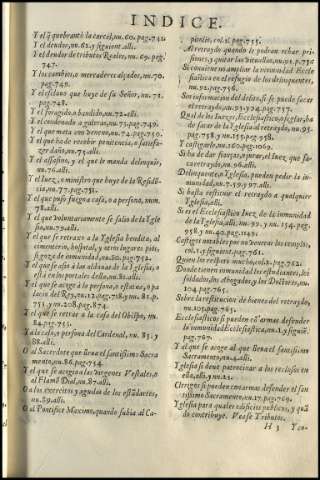 INDICE.
Y el q̃ quebrantò la carcel, nu. 60. pag. 742.
Y el deudor, nu. 62. y siguient. alli.
Y el deudor de tributos Reales, nu. 69. pag.
747.
Y los cambios, o mercaderes alçados, nu. 70.
pag. 748.
Y el esclauo que huye de su Señor, nu. 71.
pag. 748.
Y el foragido o bandito, nu. 72. alli.
Y el condenado a galeras, nu. 73. pag. 749.
Y el que mata con veneno, nu. 74. pag. 750.
Y el que ha de recibir penitencia, o satisfa-
zer daño, nu. 75. alli.
Y el assassino, y el que le manda delinquir,
nu. 76. alli.
Y el Iuez, o ministro que huye de la Residē-
cia, nu. 77. pag. 751.
Y el que puso fuego a casa, o a persona, num.
78. alli.
Y el que voluntariamente se salio de la Ygle
sia, nu. 79. alli.
Y el que se retraxo a la Yglesia bendita, al
cimenterio, hospital, y otros lugares pios,
si goza de inmunidad, nu. 80. pag. 752.
Y el que se asio a las aldauas de la Yglesia, o
està en los portales della, nu. 81. alli.
Y el que se acoge a la persona, o estatua, o pa
lacio del Rey, nu. 12. pag. 718. y nu. 82. p.
753. y nu. 208. pag. 874.
Y el que se retrae a la casa del Obispo, nu.
84. pag. 755.
Y a la casa, o persona del Cardenal, nu. 85. y
88. alli.
O al Sacerdote que lleua el santissimo Sacra
mento, nu. 86. pag. 754.
Y el que se acogia a las virgenes Vestales, o
al Flamē Dial, nu. 87. alli.
O a los exercitos y aguilas de los estādartes,
nu. 89. alli.
O al Pontifice Maximo, quando subia al Ca-
pitolio, col. 2. pag. 755.
Al retraydo quando le podran echar pri-
siones, y quitar los vituallas, nu. 91. p. 756
Si conuiene ampliar la inmunidad Eccle
siastica en el refugio de los delinquentes,
nu. 92. pag. 756.
Sin informacion del delito, si se puede sacar
el retraydo, nu. 93. y 104. pag. 757.
Qual de los Iuezes, Ecclesiastico, o seglar, ha
de sacar de la Yglesia al retraydo, nu. 95.
pag. 758. y nu. 155. p. 958.
Y castigarle, nu. 160. pag. 1069.
Si ha de dar fianças, o jurar, el Iuez que sa-
ca retraydo, nu. 96. alli.
Delinquente, o Yglesia, pueden pedir la in-
munidad, nu. 7. 59. y 97. alli.
Si se ha de restituyr el retraydo a qualquier
Yglesia, alli.
Si es el Ecclesiastico Iuez de la inmunidad
de la Yglesia, alli. nu. 99. y nu. 154. pag.
958. y nu. 40. pag. 1149.
Castigos notables por no venerar los templos,
col. 1. y siguient. pag. 761.
Quien los respetaua mucho, gloss. pag. 762.
Donde tienen inmunidad los estudiantes, los
soldados, los abogados y los Dotores, nu.
104. pag. 765.
Sobre la restitucion de bienes del retraydo,
nu. 105. pag. 766.
Ecclesiasticos si pueden cõ armas defender
la inmunidad Ecclesiastica, nu. 1. y siguiẽ.
pag. 767.
Y el que se acoge al que lleua el santissimo
Sacramento, nu. 4. alli.
Yglesia si deue patrocinar a los reclusos en
ella, alli, y nu. 22.
Clerigos si pueden con armas defender el san
tissimo Sacramento, nu. 17. pag. 769.
Yglesia para quales edificios publicos, y quā
do contribuye. Vease Tributos.
H 3 Yco-